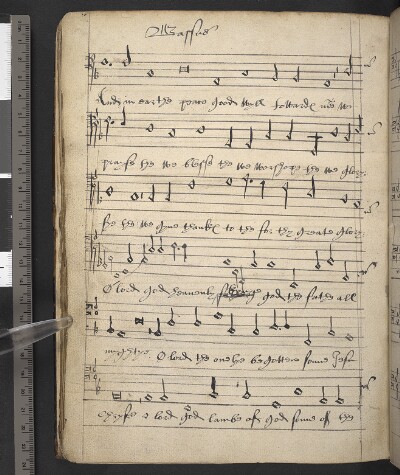 Masses
And in earthe peace good wyll towarde men we
prayse the we blesse the we worshype the we glory
fye the we gyve thanke to the for thy greate glory
O lord god heavenly god the father all
myghtye O lord the onelye begotten sonne Jesu
chryste o lord god lambe of god sonne of the